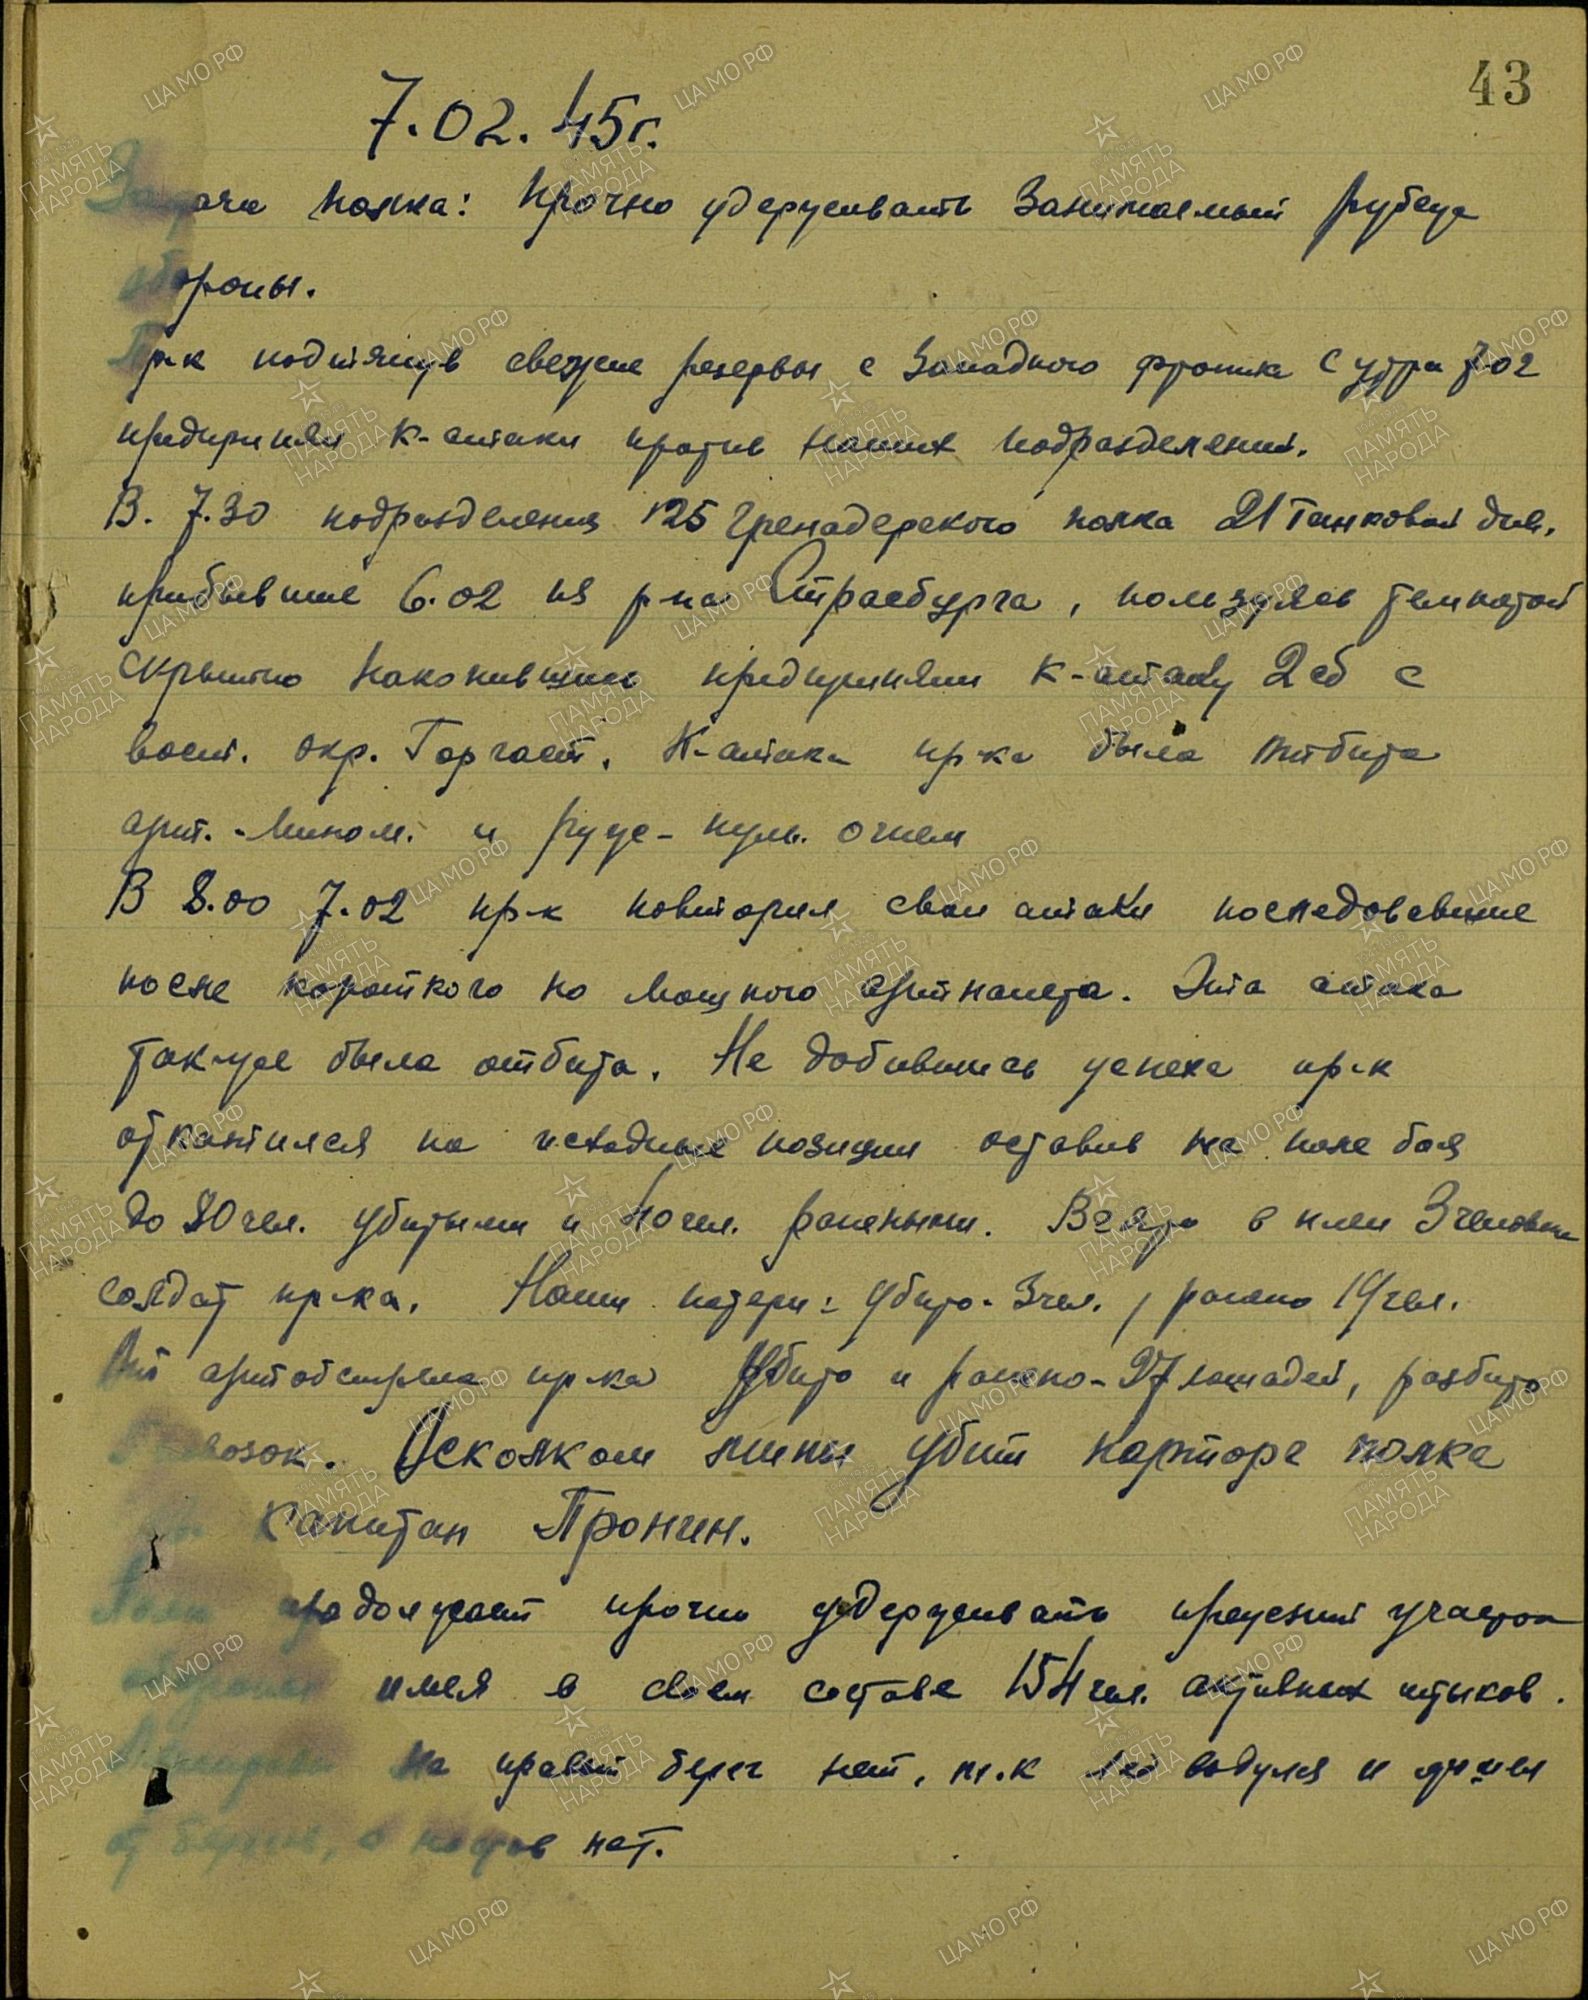 43
7.02.45г.
Задачи полка: Прочно удерживать занимаемый рубеж
обороны.
Пр-к подтянув свежие резервы с Западного фронта с утра 7.02
предпринял к-атаки против наших подразделений.
В. 7.30 подразделения 125 Гренадерского полка 21 Танковой див.
прибывшие 6.02 из р-на Страсбурга, пользуясь темнотой
скрытно накопившись предприняли к-атаку 2 сб с
вост. окр. Горгаст. К-атака пр-ка была отбита
арт.-мином. и руж-пул. огнем
В 8.00 7.02 пр-к повторил свои атаки последовавшие
после короткого но мощного артналета. Эта атака
так-же была отбита. Не добившись успеха пр-к
откатился на исходные позиции оставив на поле боя
до 80 чел. убитыми и 40 чел. ранеными. Взято в плен 3 человек
солдат пр-ка. Наши потери: убито-3 чел., ранено 19 чел.
От артобстрела пр-ка убито и ранено-27 лошадей, разбито
повозок. Осколком мины убит парторг полка
капитан Пронин.
Полк продолжает прочно удерживать прежний участок
обороны имея в своем составе 154 чел. активных штыков.
на правый берег нет, т.к. лед вздулся и
от берегов, а нет.